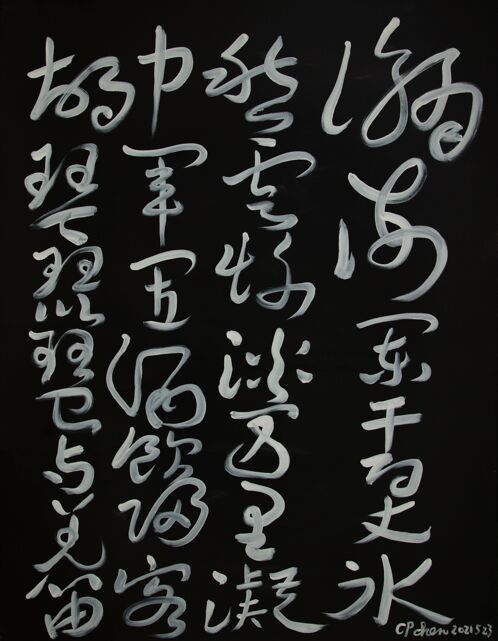 瀚海阑干百丈冰
愁云惨淡万里凝
中军置酒饮归客
胡琴琵琶与羌笛
CP chen 2021 5.23